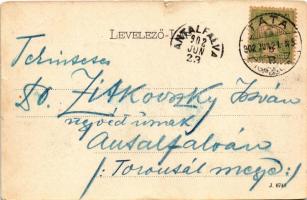 LEVELEZŐ-L
ANTALFALVA
902
JUN
23
TATA
902 JUN 21
Tekintetes
Dr. Zitkovszky István
úrnak
Antalfalván
(: Torontál megye :)